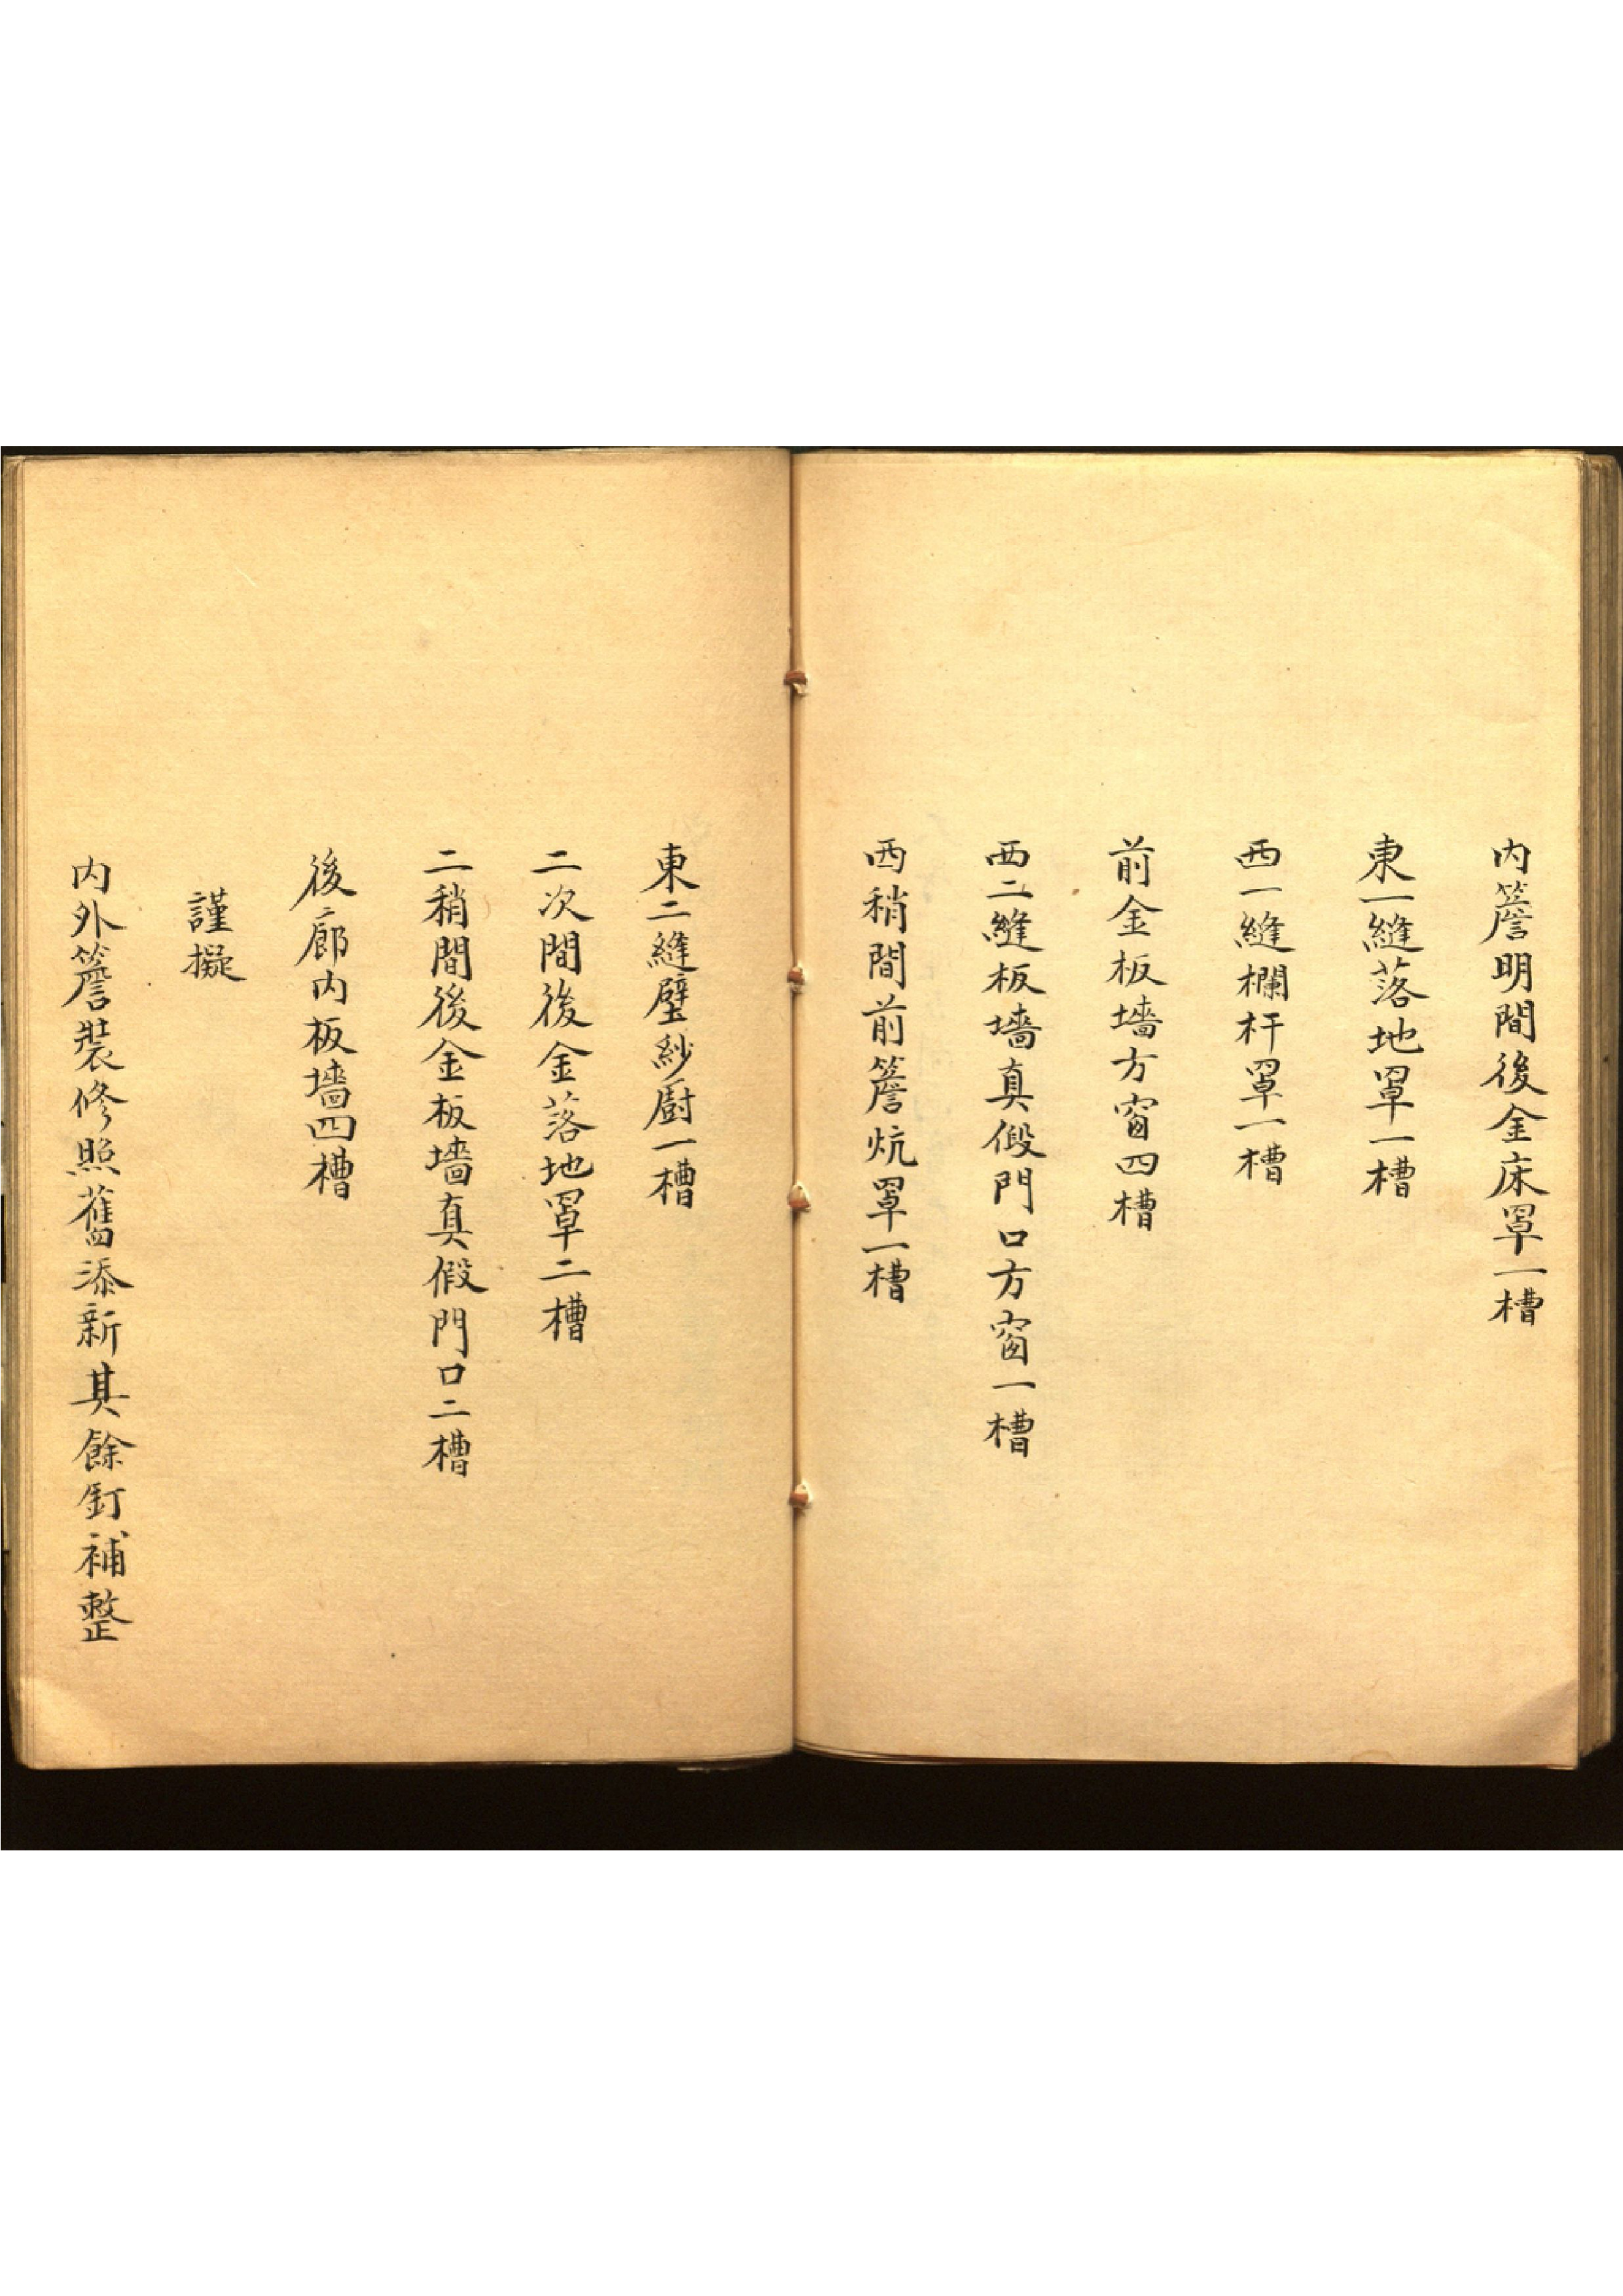 內簷明間後金床罩一槽
東一縫落地罩一槽
西一縫欄杆罩一槽
前金板墻方窗四槽
西二縫板墻真假門口方窗一槽
西稍間前簷炕罩一槽
東二縫壁紗廚一槽
二次間後金落地罩二槽
二稍間後金板墻真假門口二槽
後廊內板墻四槽
謹擬
內外簷裝修照舊添新其餘釘補整